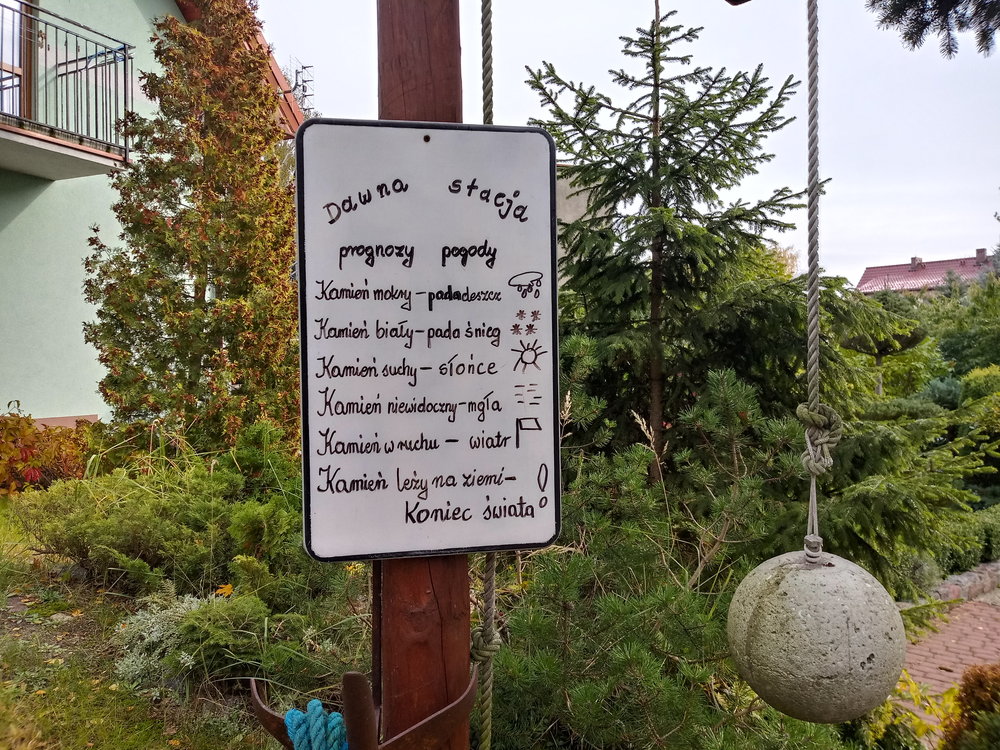 Dawna stacja
prognozy pogody
Kamień mokry - pada deszcz
Kamień biały - pada śnieg
Kamień suchy - słońce
Kamień niewidoczny - mgła
Kamień w ruchu - wiatr
Kamień leży na ziemi -
Koniec świata!